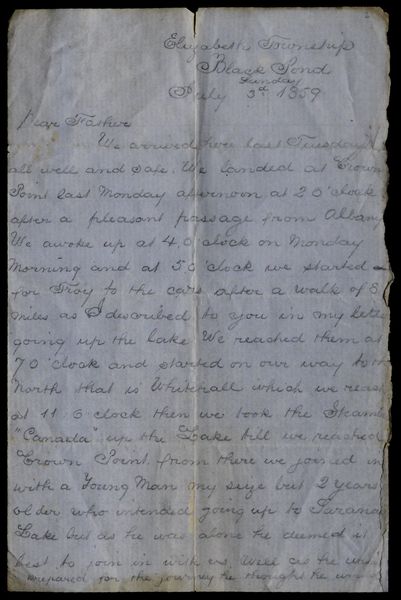 Elizabeth Township
Black Pond
Sunday
July 3d 1859
Dear Father
We arrived here last Tuesday
all well and safe. We landed at Crown
Point last Monday afternoon at 2 O'clock
after a pleasant passage from Albany
We awoke up at 4 O'clock on Monday
Morning and at 5 O'clock we started
for Troy to the cars after a walk of 8
miles as I described to you in my letter
going up the Lake We reached them at
7 O'clock and started on our way to the
North that is Whitehall which we reach
at 11 O clock then we took the Steamb
"Canada" up the Lake till we reached
Crown Point from there we joined in
with a Young Man my size but 2 years
older who intended going up to Sarana
Lake but as he was alone he deemed it
best to join in with us. Well as he was
prepared for the journey he thought he